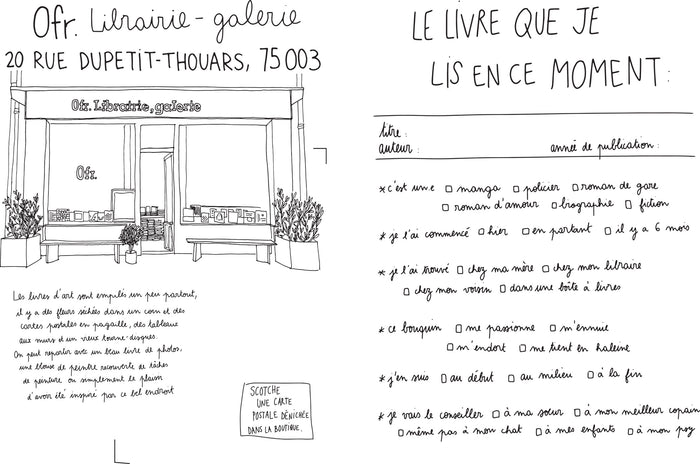 Ofr. Librairie-galerie
20 RUE DUPETIT-THOUARS, 75003
Ofr. Librairie, galerie
Ofr.
Les livres d'art sont empilés un peu partout,
il y a des fleurs séchées dans un coin et des
cartes postales en pagaille, des tableaux
aux murs d'un vieux tourne-disques.
On peut repartir avec un beau livre de photos,
une blouse de peintre recouverte de tâches
de peinture ou simplement le plaisir
d'avoir été inspiré par ce bel endroit
SCOTCHE
UNE CARTE
POSTALE DÉNICHÉE
DANS LA BOUTIQUE.
LE LIVRE QUE JE
LIS EN CE MOMENT :
titre :
auteur : année de publication :
* c'est un.e □ manga □ policier □ roman de gare
□ roman d'amour □ biographie □ fiction
* je l'ai commencé □ hier □ en partant □ il y a 6 mois
* je l'ai trouvé □ chez ma mère □ chez mon libraire
□ chez mon voisin □ dans une boîte à livres
* ce bouquin □ me passionne □ m'ennuie
□ m'endort □ me tient en haleine
* j'en suis □ au début □ au milieu □ à la fin
* je vais le conseiller □ à ma soeur □ à mon meilleur copain
□ même pas à mon chat □ à mes enfants □ à mon psy